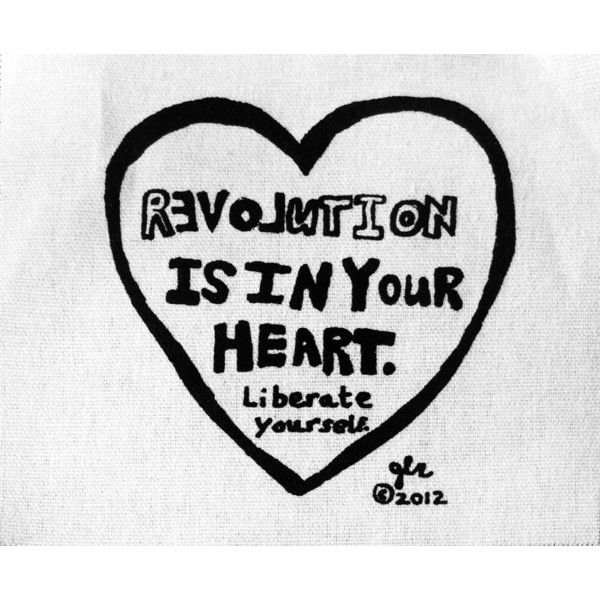 REVOLUTION
IS IN YOUR
HEART.
Liberate
yourself.
glr
©2012